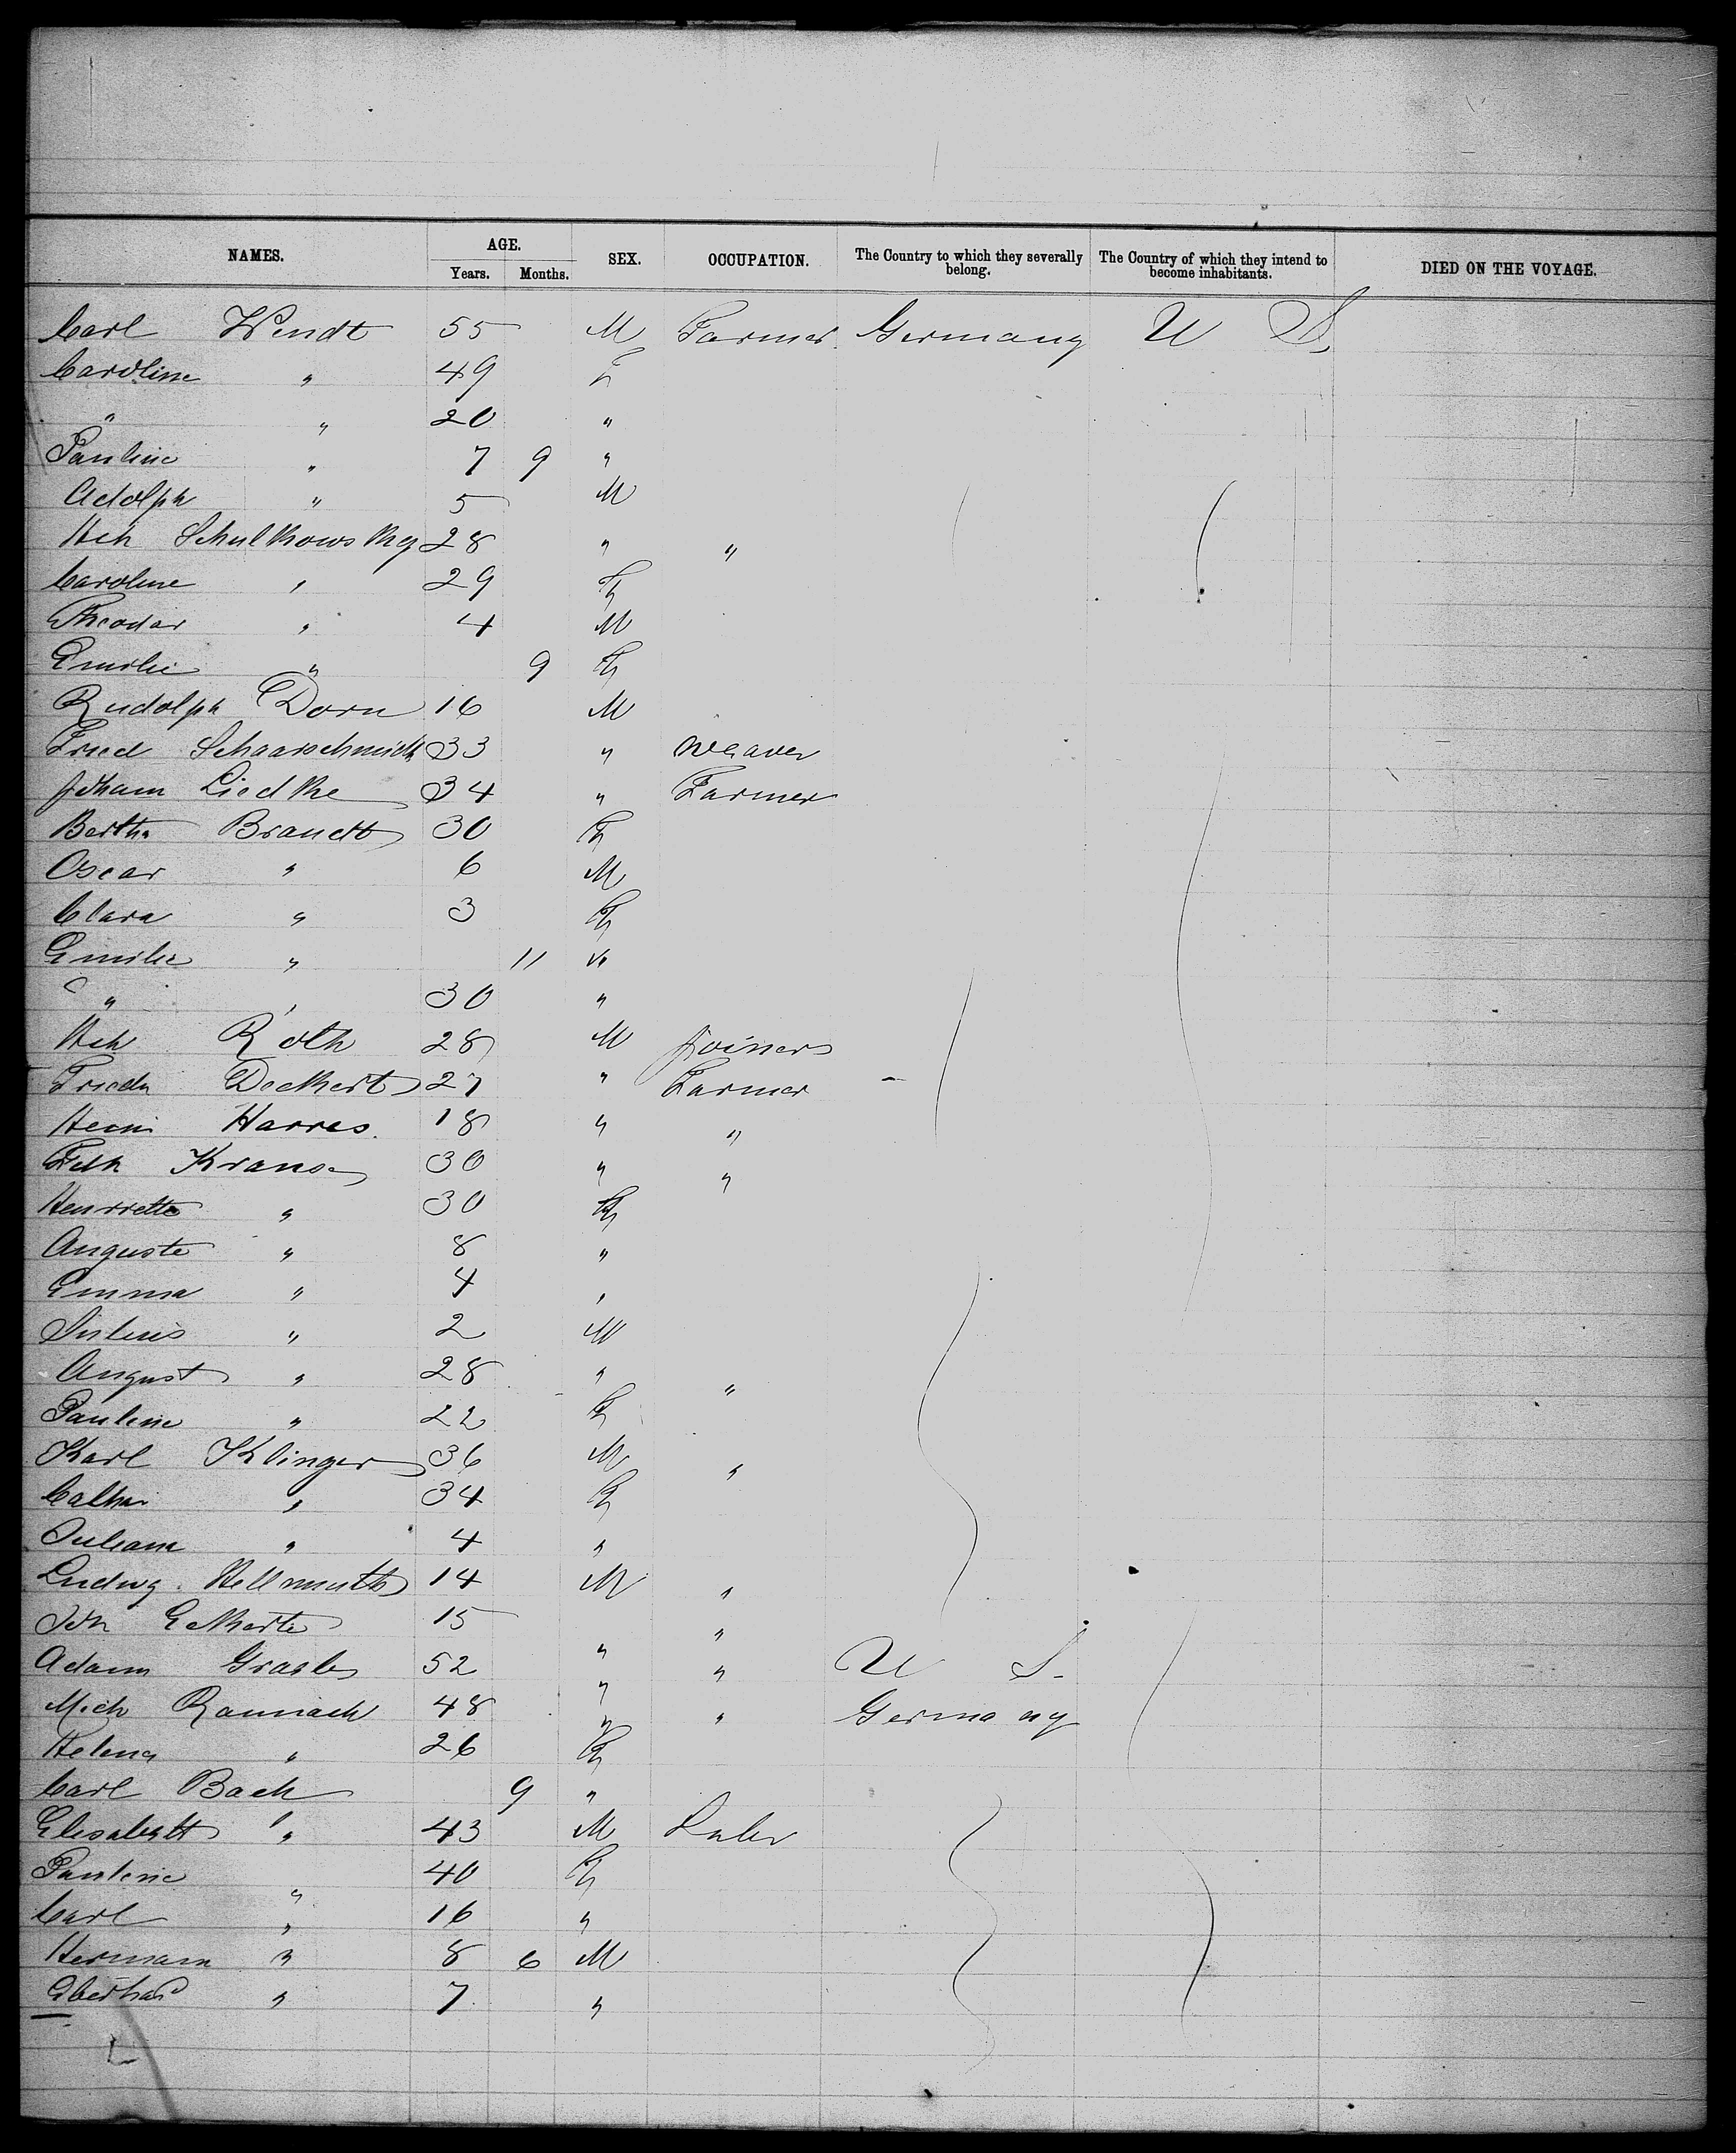 NAMES. AGE. SEX. OCCUPATION. The Country to which they severally belong. The Country of which they intend to become inhabitants. DIED ON THE VOYAGE.
Years. Months.
Carl Wendt 55 M Farmer. Germany U S,
Caroline " 49 F
" " 20 "
Pauline " 7 9 "
Adolph " 5 M
Hch Schulkowsky 28 " "
Caroline " 29 F
Theodor " 4 M
Emilie " 9 F
Rudolph Dorn 16 M
Fried Schaarschmidt 33 " weaver
Johann Liedke 34 " Farmer
Bertha Brandt 30 F
Oscar " 6 M
Clara " 3 F
Emilie " 11 "
" " 30 "
Hch Roth 28 M Joiner
Friedr Deckert 27 " Farmer
Heinr Harres. 18 " "
Fdh Krause 30 " "
Henrriette " 30 F
Auguste " 8 "
Emma " 4 "
Julius " 2 M
August " 28 " "
Pauline " 22 F
Karl Klinger 36 M "
Cathr " 34 F
Juliana " 4 "
Ludwg. Hellmuth 14 M "
Joh Eckharte 15 " "
Adam 52 " " U S.
Mich Raunach 48 " " Germany
Helena " 26 F
Carl Bach 9 "
Elisabeth " 43 M
Pauline " 40 F
Carl " 16 "
Hermann " 8 6 M
Eberhard " 7 "